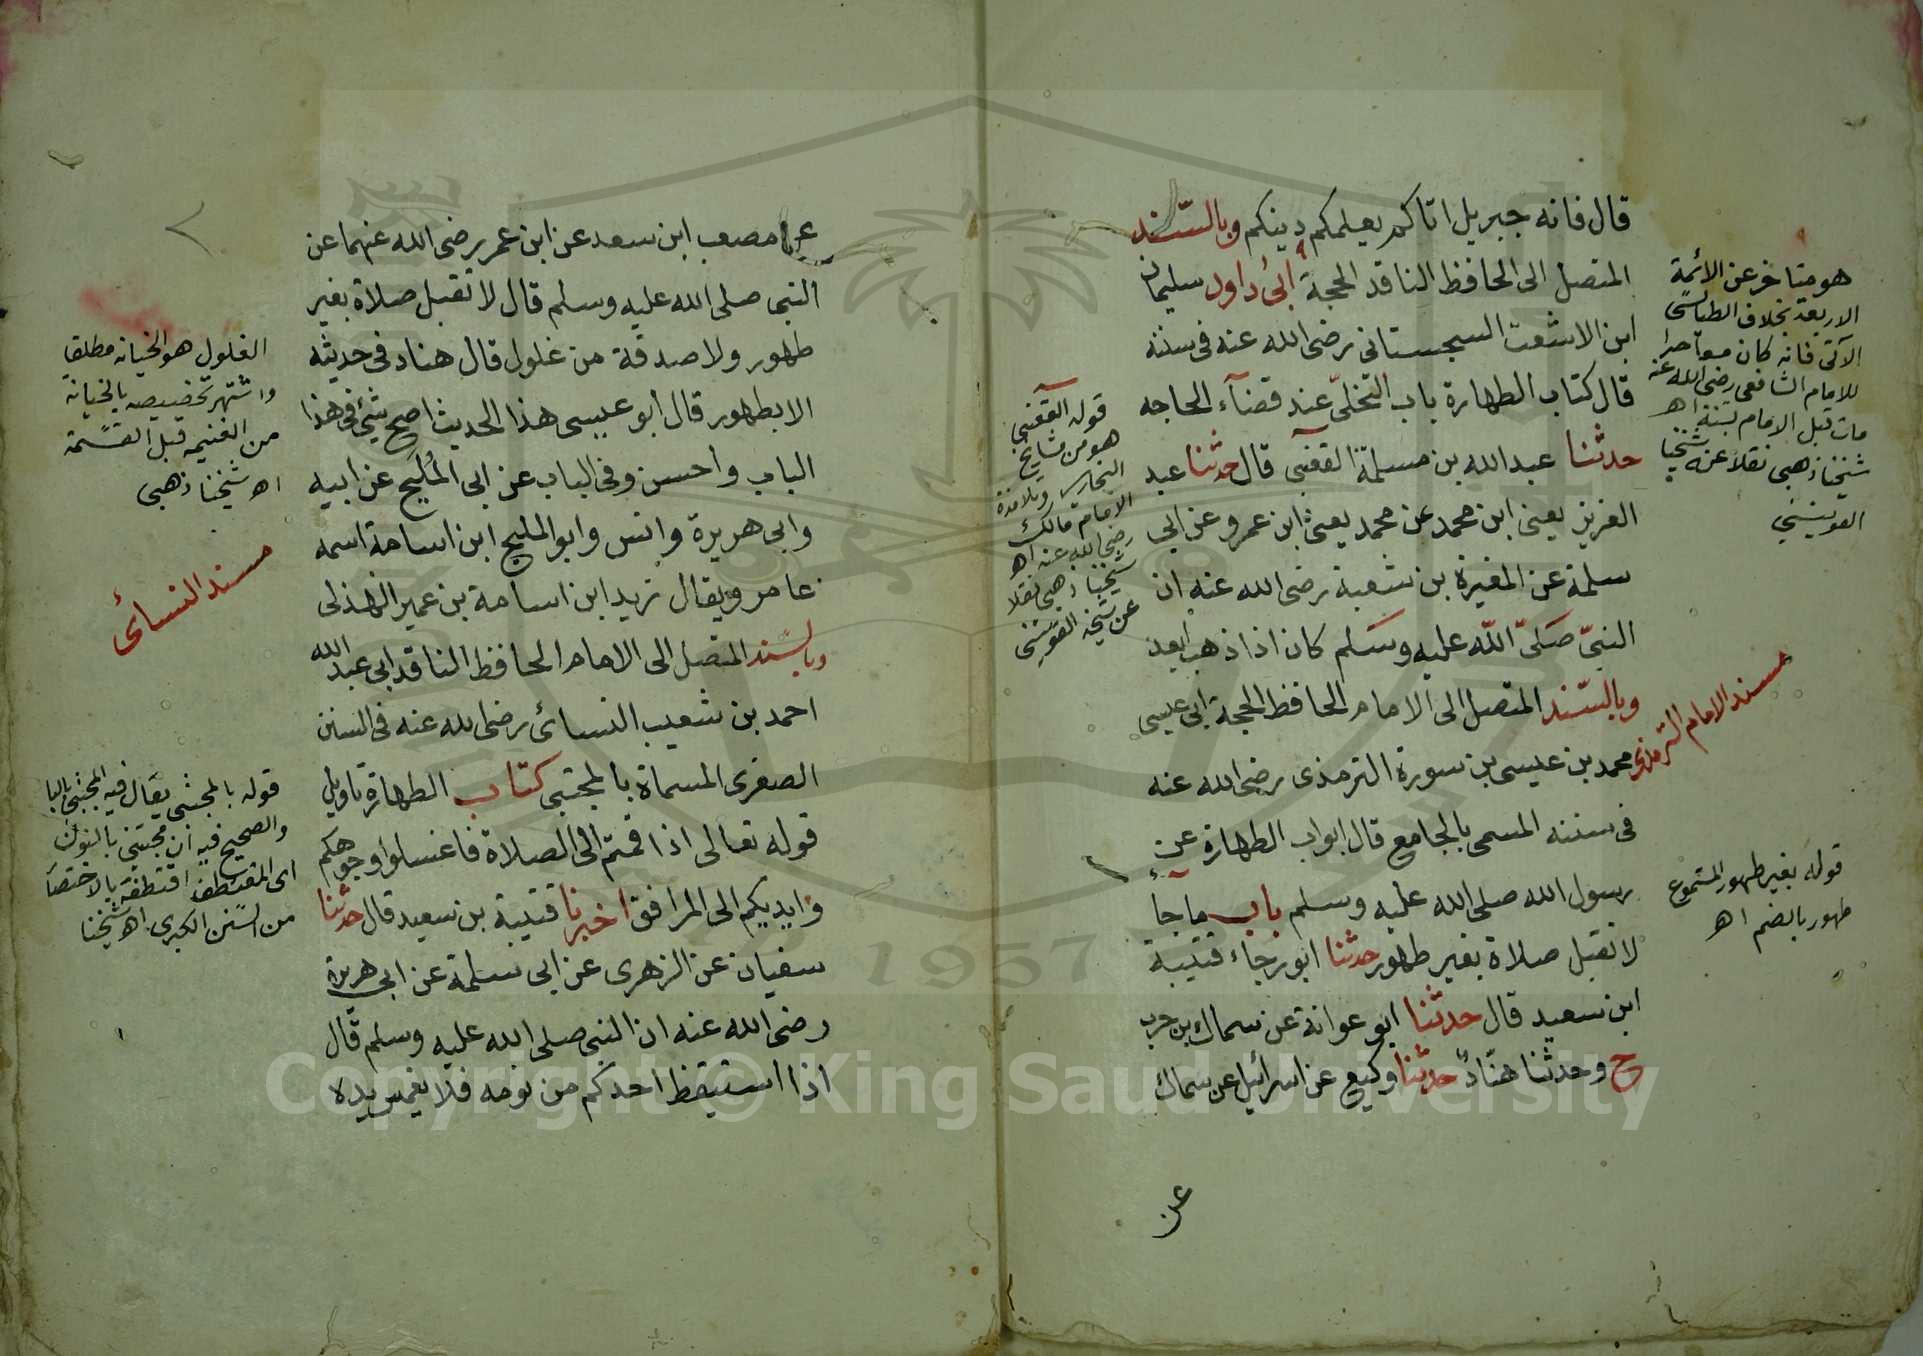 قال فانه جبريل اتاكم يعلمكم دينكم وبالسند
المتصل الى الحافظ الناقد الحجة ابى داود سليمان
ابن الاشعث السجستانى رضى الله عنه فى سننه
قال كتاب الطهارة باب التخلى عند قضآء الحاجه
حدثنا عبد الله بن مسلمة القعنبى قال حدثنا عبد
العزيز يعنى ابن محمد عن محمد يعنى ابن عمرو عن ابى
سلمة عن المغيرة بن شعبة رضى الله عنه ان
النبىّ صَلىّ اللّه عليه وسَلم كان اذا ذهب ابعد
وبالسّند المتصل الى الامام الحافظ الحجة ابى عيسى
محمد بن عيسى بن سورة الترمذى رضى الله عنه
فى سننه المسمى بالجامع قال ابواب الطهارة عن
رسول الله صلى الله عليه وسلم باب ماجآ
لا تقبل صلاة بغير طهور حدثنا ابو رجاء قتيبة
ابن سعيد قال حدثنا ابو عوانة عن سماك بن حرب
ح وحدثنا هنّادٌ حدثنا وكيع عن اسرائيل عن سماك
عن
هو متاخر عن الائمة
الاربعة بخلاف الطيالسى
الآتى فانه كان معاصرا
للامام الشافعى رضى الله عنه
مات قبل الامام بسنة اهـ
شيخنا ذهبى نقلا عنه شيخنا
القويسنى
قوله القعنبى
هو من مشايخ
البخارى وتلامذة
الامام مالك
رضى الله عنه اهـ
شيخنا ذهبى نقلا
عن شيخه القويسنى
مسند الامام الترمذى
قوله بغير طهور المسموع
طهور بالضم اهـ
عن مصعب ابن سعد عن ابن عمر رضى الله عنهما عن
النبى صلى الله عليه وسلم قال لا تقبل صلاة بغير
طهور ولا صدقة من غلول قال هناد فى حديثه
الا بطهور قال ابو عيسى هذا الحديث اصح شئ فى هذا
الباب واحسن وفى الباب عن ابى المُليح عن ابيه
وابى هريرة وانس وابو المليح ابن اسامة اسمه
عامر ويقال زيد ابن اسامة بن عمير الهذلى
وبالسند المتصل الى الامام الحافظ الناقد ابى عبد الله
احمد بن شعيب النسائ رضى الله عنه فى السنن
الصغرى المسماة بالمجتبى كتاب الطهارة تاويل
قوله تعالى اذا قمتم الى الصلاة فاغسلوا وجوهكم
وايديكم الى المرافق اخبرنا قتيبة بن سعيد قال حدثنا
سفيان عن الزهرى عن ابى سلمة عن ابى هريرة
رضى الله عنه ان النبى صلى الله عليه وسلم قال
اذا استيقظ احدكم من نومه فلا يغمس يده
الغلول هو الخيانه مطلقا
واشتهر تخصيصه بالخيانة
من الغنيمه قبل القسمة
اهـ شيخنا ذهبى
مسند النسائى
قوله بالمجتبى يقال فيه المجتبى بالبا
والصحيح فيه ان مجتنى بالنون
اى المقتطف اقتطفه بالاختصا
من السنن الكبرى اهـ شيخنا
1957
Copyright © King Saud University